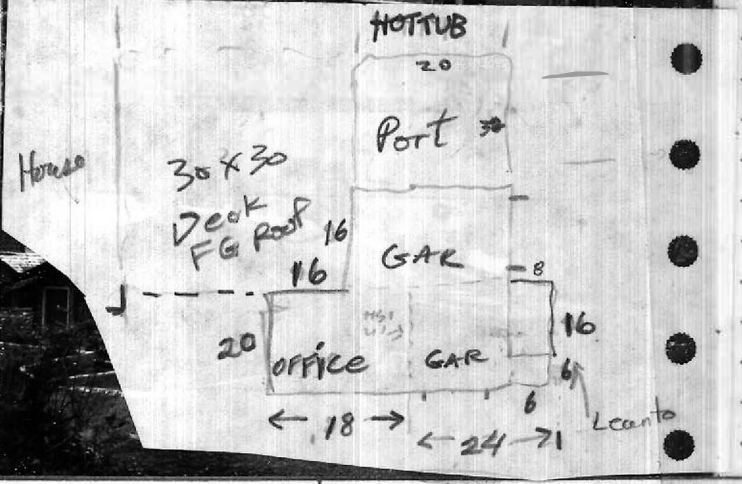 HOTTUB
20
Port
House
30 x 30
Deck
FG Roof
16
16
GAR
8
20
OFFICE
GAR
16
6
6
Leanto
18
24